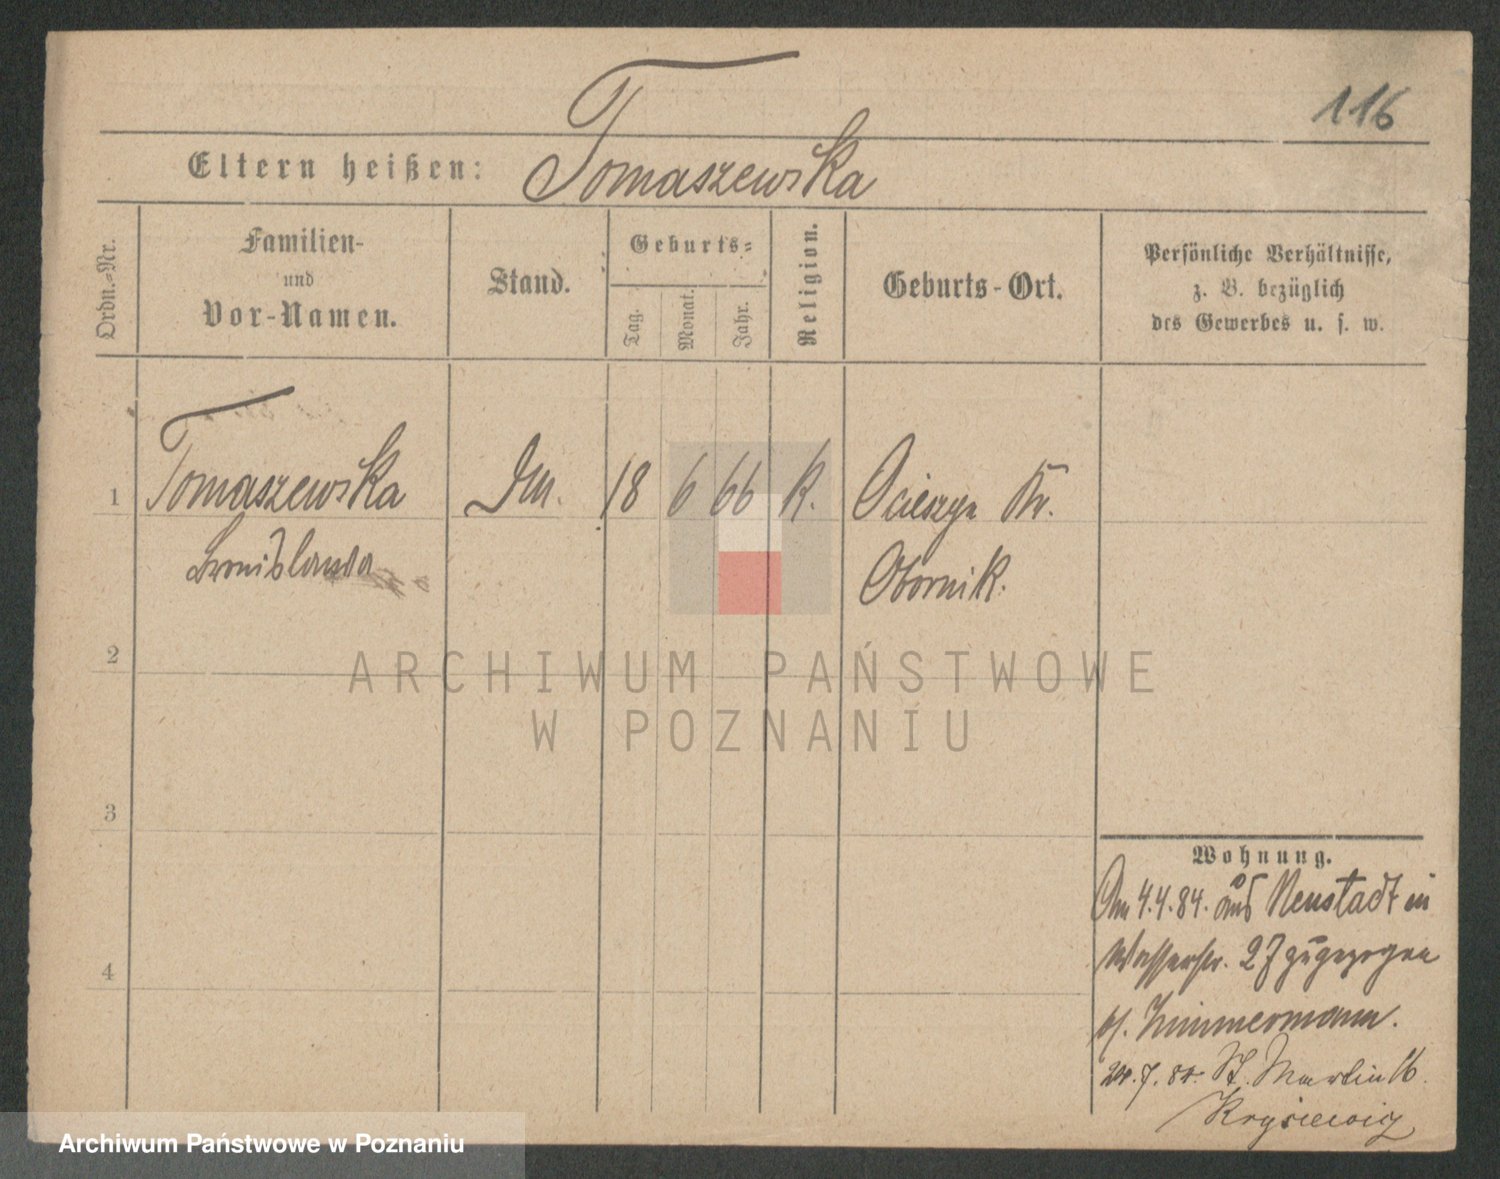 116
Tomaszewska
Eltern heißen:
Ordn.=Nr.
Familien-
und
Vor-Namen.
Stand.
Geburts=
Tag.
Monat.
Jahr.
Religion.
Geburts-Ort.
Persönliche Verhältnisse,
z. B. bezüglich
des Gewerbes u. s. w.
1 Tomaszewska 18 6 66 K. Ocieszyn Kr.
Bronislawa Obornik.
2
3
4
ARCHIWUM PAŃSTWOWE
W POZNANIU
Wohnung.
Am 4.4.84. aus Neustadt in
Wasserstr. 27 zugezogen
b/. Zimmermann.
24.7.84. St. Martin 16.
Krysiewicz
Archiwum Państwowe w Poznaniu